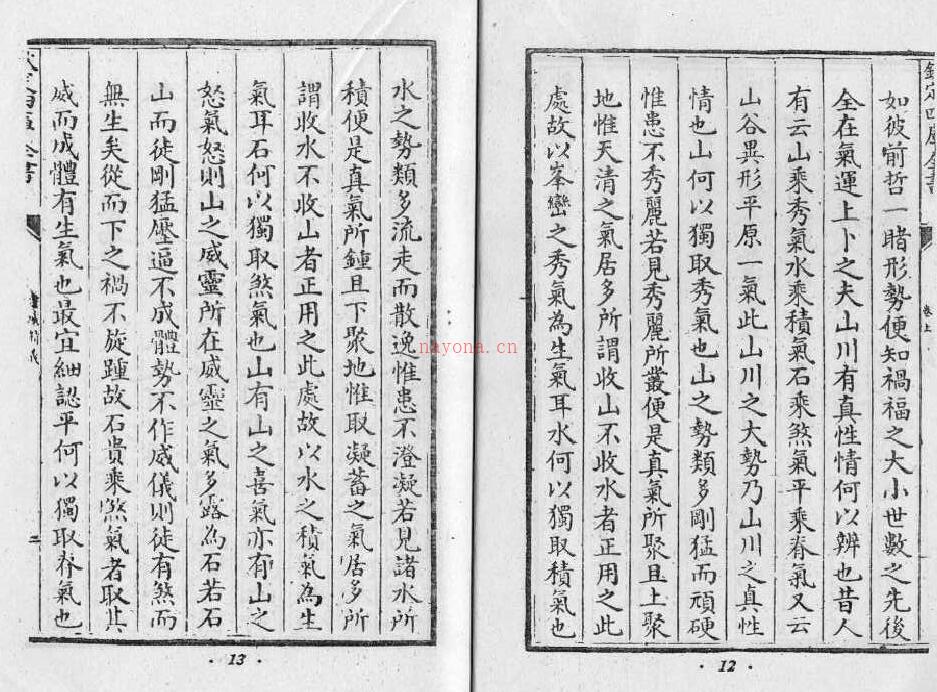 欽定四庫全書
卷上
如彼前哲一睹形勢便知禍福之大小世數之先後
全在氣運上卜之夫山川有真性情何以辨也昔人
有云山乘秀氣水乘積氣石乘煞氣平乘脊氣又云
山谷異形平原一氣此山川之大勢乃山川之真性
情也山何以獨取秀氣也山之勢類多剛猛而頑硬
惟患不秀麗若見秀麗所叢便是真氣所聚且上聚
地惟天清之氣居多所謂收山不收水者正用之此
處故以峯巒之秀氣為生氣耳水何以獨取積氣也
· 12 ·
水之勢類多流走而散逸惟患不澄凝若見諸水所
積便是真氣所鍾且下聚地惟取凝蓄之氣居多所
謂收水不收山者正用之此處故以水之積氣為生
氣耳石何以獨取煞氣也山有山之喜氣亦有山之
怒氣怒則山之威靈所在威靈之氣多露為石若石
山而徒剛猛壓逼不成體勢不作威儀則徒有煞而
無生矣從而下之禍不旋踵故石貴乘煞氣者取其
威而成體有生氣也最宜細認平何以獨取脊氣也
二
· 13 ·
nayona.cn